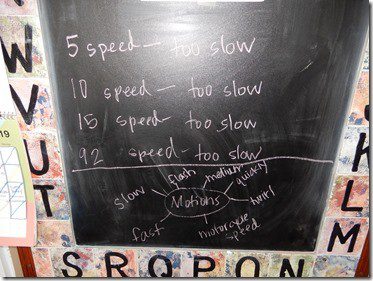 5 speed — too slow
10 speed — too slow
15 speed — too slow
92 speed — too slow
slow
flash
medium
quickly
twirl
Motions
fast
motorcycle speed
W
V
U
T
S R Q P O N
M
L
K
19